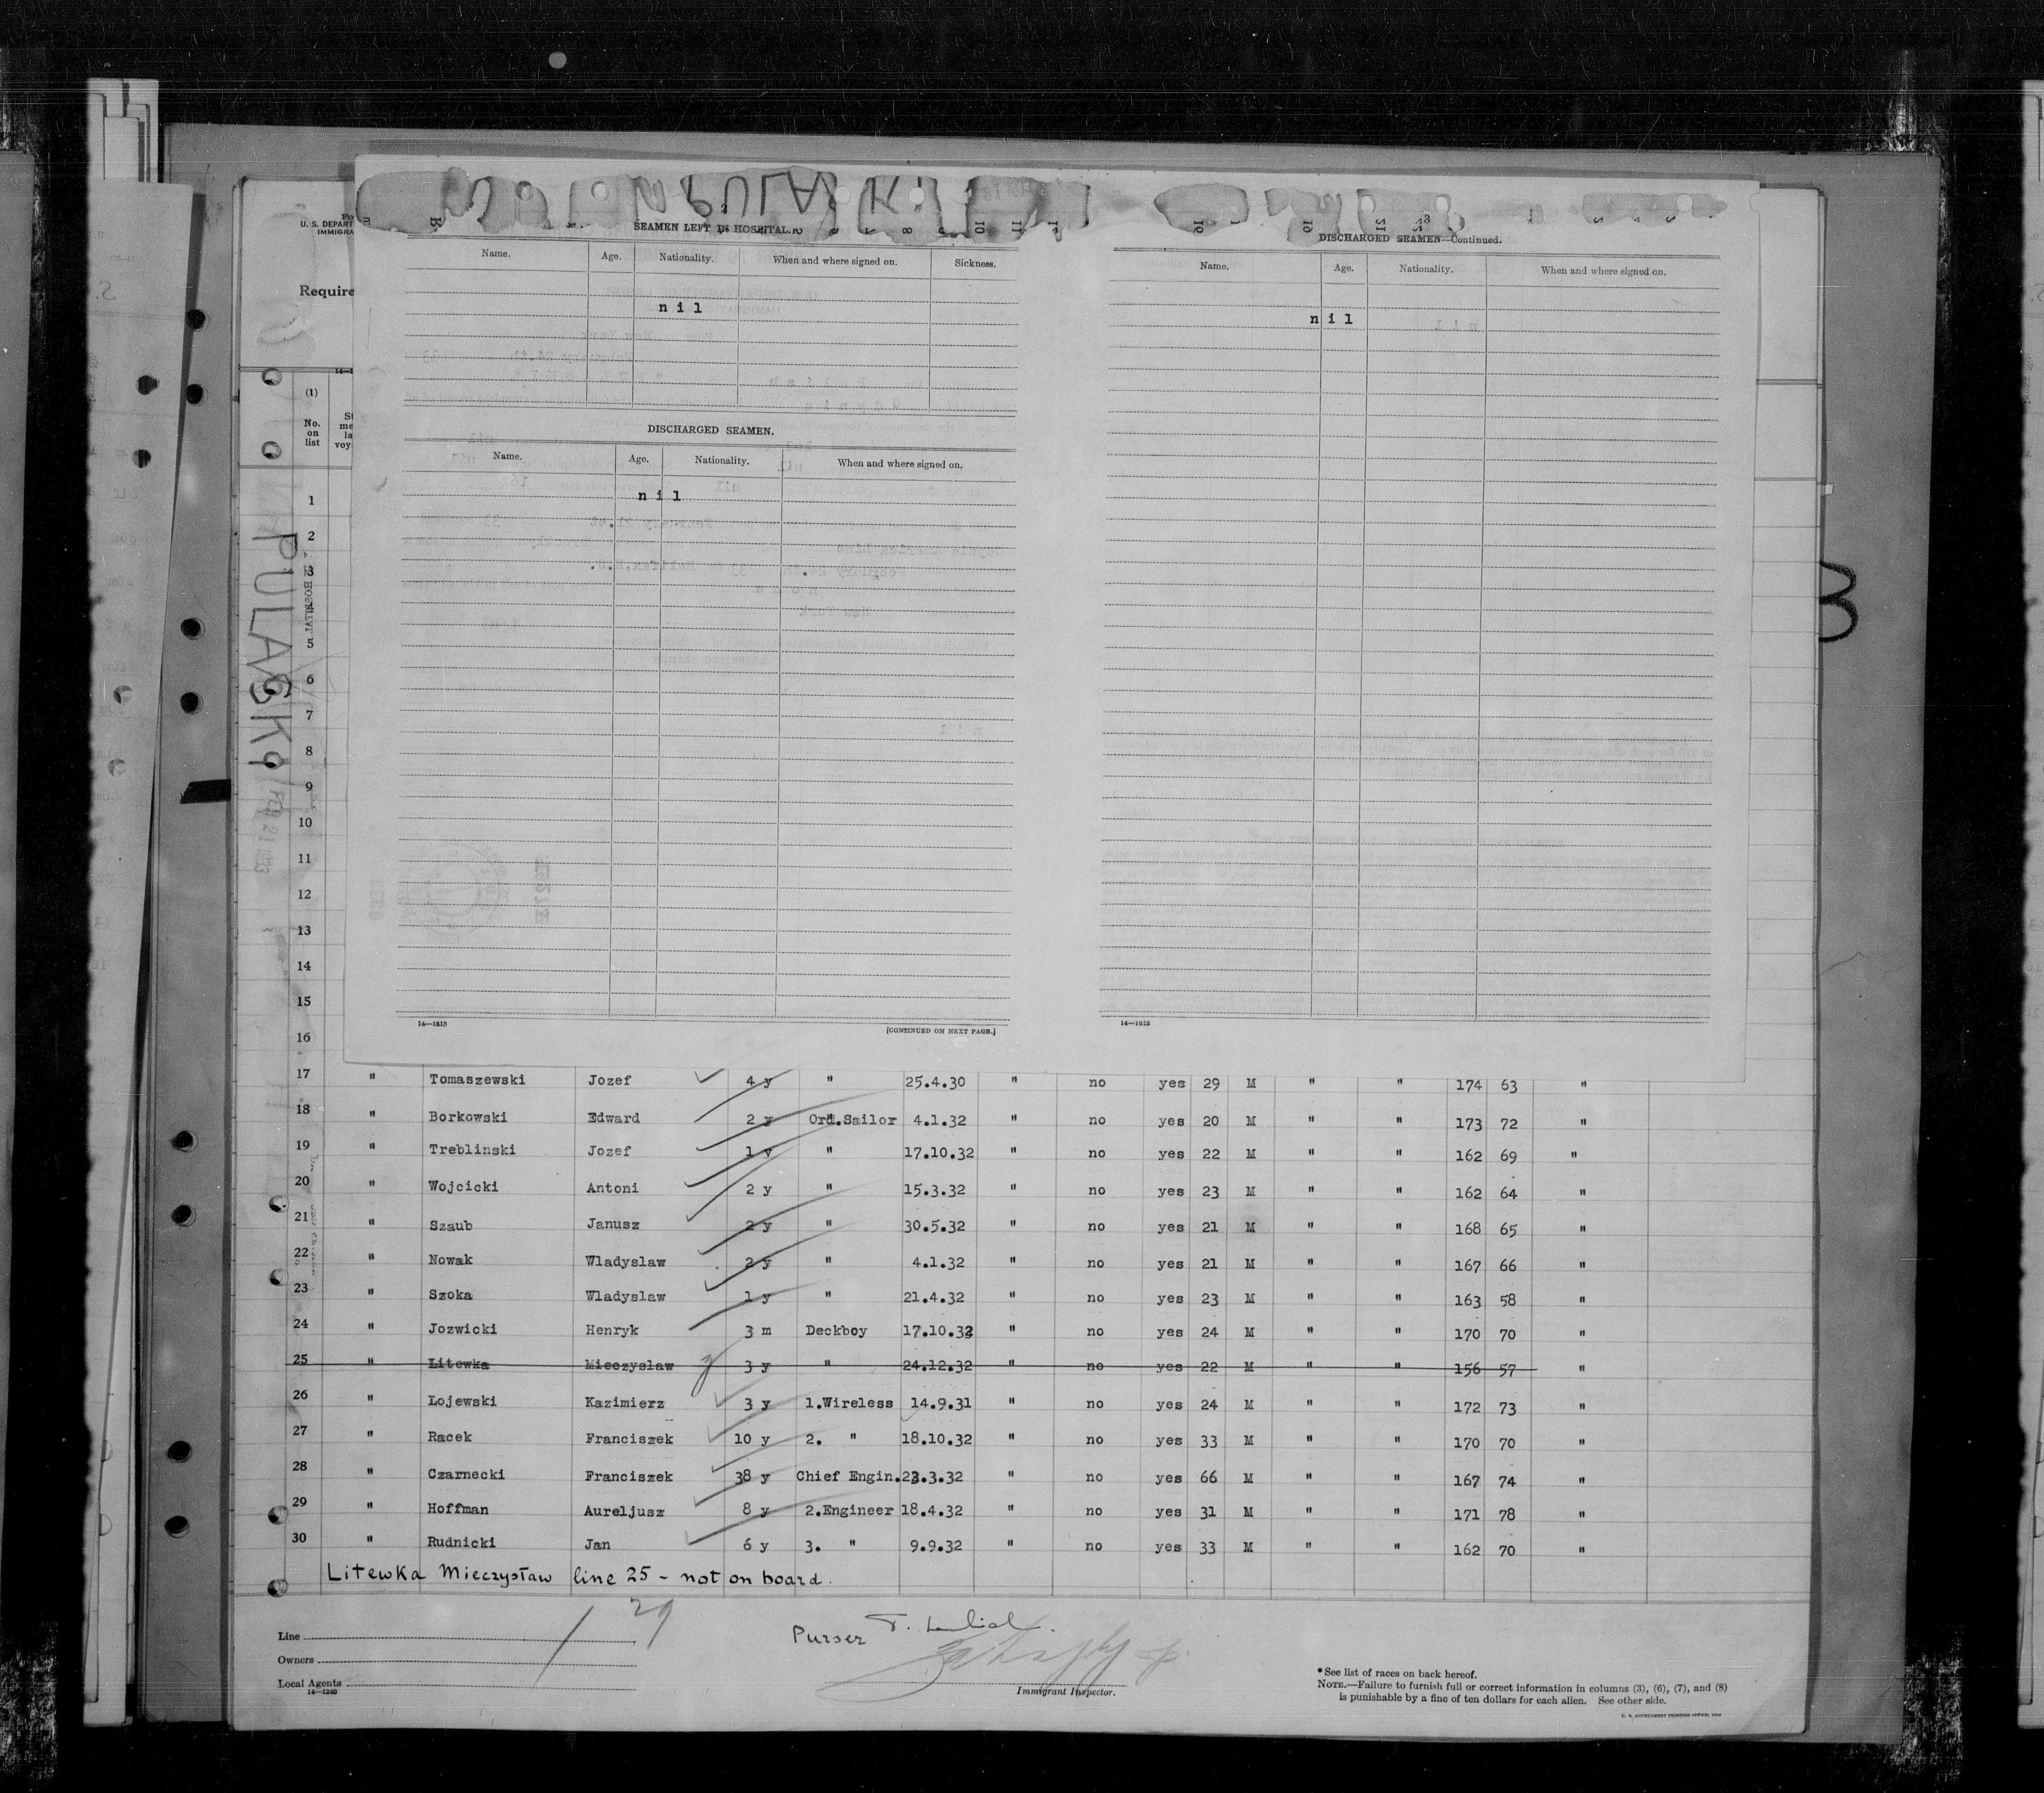 PULASKI
SEAMEN LEFT IN HOSPITAL.
Name. Age. Nationality. When and where signed on. Sickness.
nil
DISCHARGED SEAMEN.
Name. Age. Nationality. When and where signed on.
nil
14—1613
[CONTINUED ON NEXT PAGE.]
DISCHARGED SEAMEN—Continued.
Name. Age. Nationality. When and where signed on.
nil
14—1613
U. S. DEPART
IMMIGRA
Require
(1)
No. on list
PULASKI
1
2
3
4
5
6
7
8
9
10
11
12
13
14
15
16
17 " Tomaszewski Jozef 4 y " 25.4.30 " no yes 29 M " " 174 63 "
18 " Borkowski Edward 2 y Ord.Sailor 4.1.32 " no yes 20 M " " 173 72 "
19 " Treblinski Jozef 1 y " 17.10.32 " no yes 22 M " " 162 69 "
20 " Wojcicki Antoni 2 y " 15.3.32 " no yes 23 M " " 162 64 "
21 " Szaub Janusz 2 y " 30.5.32 " no yes 21 M " " 168 65 "
22 " Nowak Wladyslaw 2 y " 4.1.32 " no yes 21 M " " 167 66 "
23 " Szoka Wladyslaw 1 y " 21.4.32 " no yes 23 M " " 163 58 "
24 " Jozwicki Henryk 3 m Deckboy 17.10.32 " no yes 24 M " " 170 70 "
25 " Litewka Mieczyslaw 3 y " 24.12.32 " no yes 22 M " " 156 57 "
26 " Lojewski Kazimierz 3 y 1.Wireless 14.9.31 " no yes 24 M " " 172 73 "
27 " Racek Franciszek 10 y 2. " 18.10.32 " no yes 33 M " " 170 70 "
28 " Czarnecki Franciszek 38 y Chief Engin.23.3.32 " no yes 66 M " " 167 74 "
29 " Hoffman Aureljusz 8 y 2.Engineer 18.4.32 " no yes 31 M " " 171 78 "
30 " Rudnicki Jan 6 y 3. " 9.9.32 " no yes 33 M " " 162 70 "
Litewka Mieczysław line 25 - not on board.
29
Purser
Line
Owners
Local Agents
14—1240
Immigrant Inspector.
*See list of races on back hereof.
NOTE.—Failure to furnish full or correct information in columns (3), (6), (7), and (8)
is punishable by a fine of ten dollars for each alien. See other side.